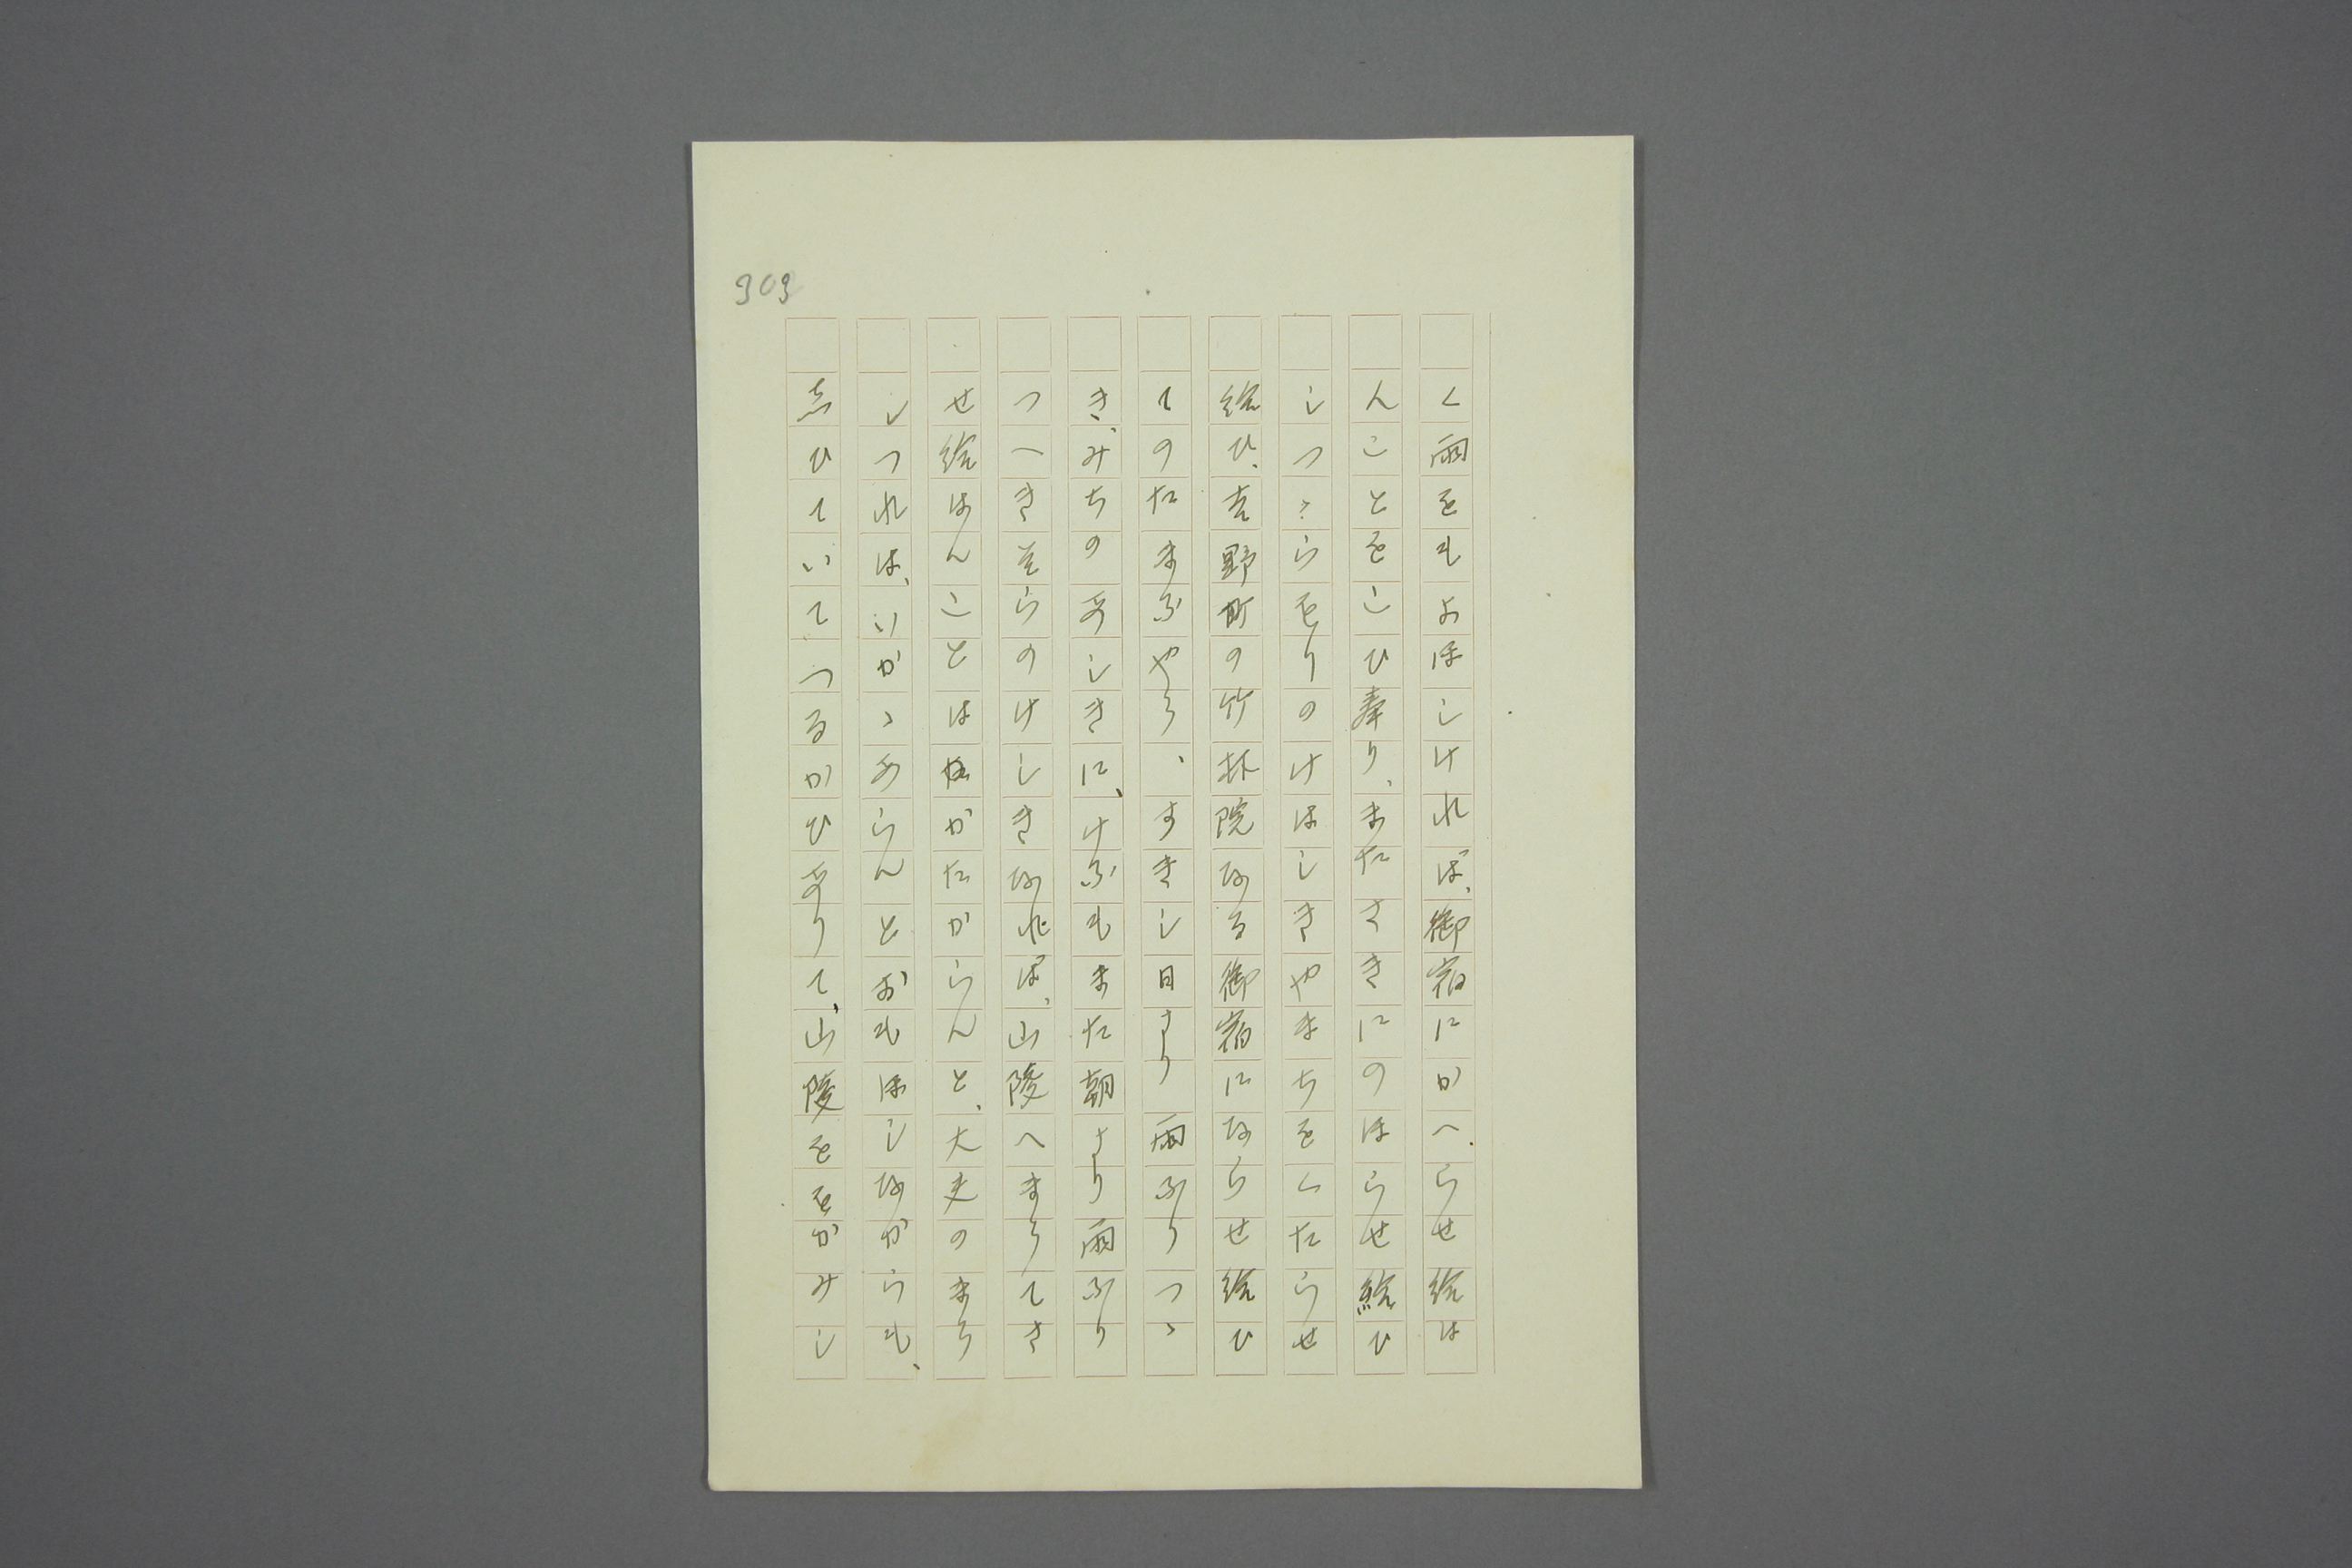 303
く雨をもよほしければ、御宿にかへらせ給は
んことをこひ奉り、またさきにのほらせ給ひ
しつゝらをりのけはしきやまちをくたらせ
給ひ、吉野町の竹林院なる御宿にならせ給ひ
てのたまふやう、すきし日より雨ふりつゝ
き、みちのあしきに、けふもまた朝より雨ふり
つへきそらのけしきなれば、山陵へまうてさ
せ給はんことはなかたからんと、大夫のまう
しつれは、いかゝあらんとおもほしなからも、
志ひていてつるかひありて、山陵ををかみし